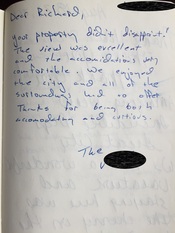 Dear Richard,
Your property didn't disappoint!
The view was excellent
and the accomidations very
comfortable. We enjoyed
the city and all of the
sorrounding had to offer
Thanks for being both
accomodating and curtious.
The